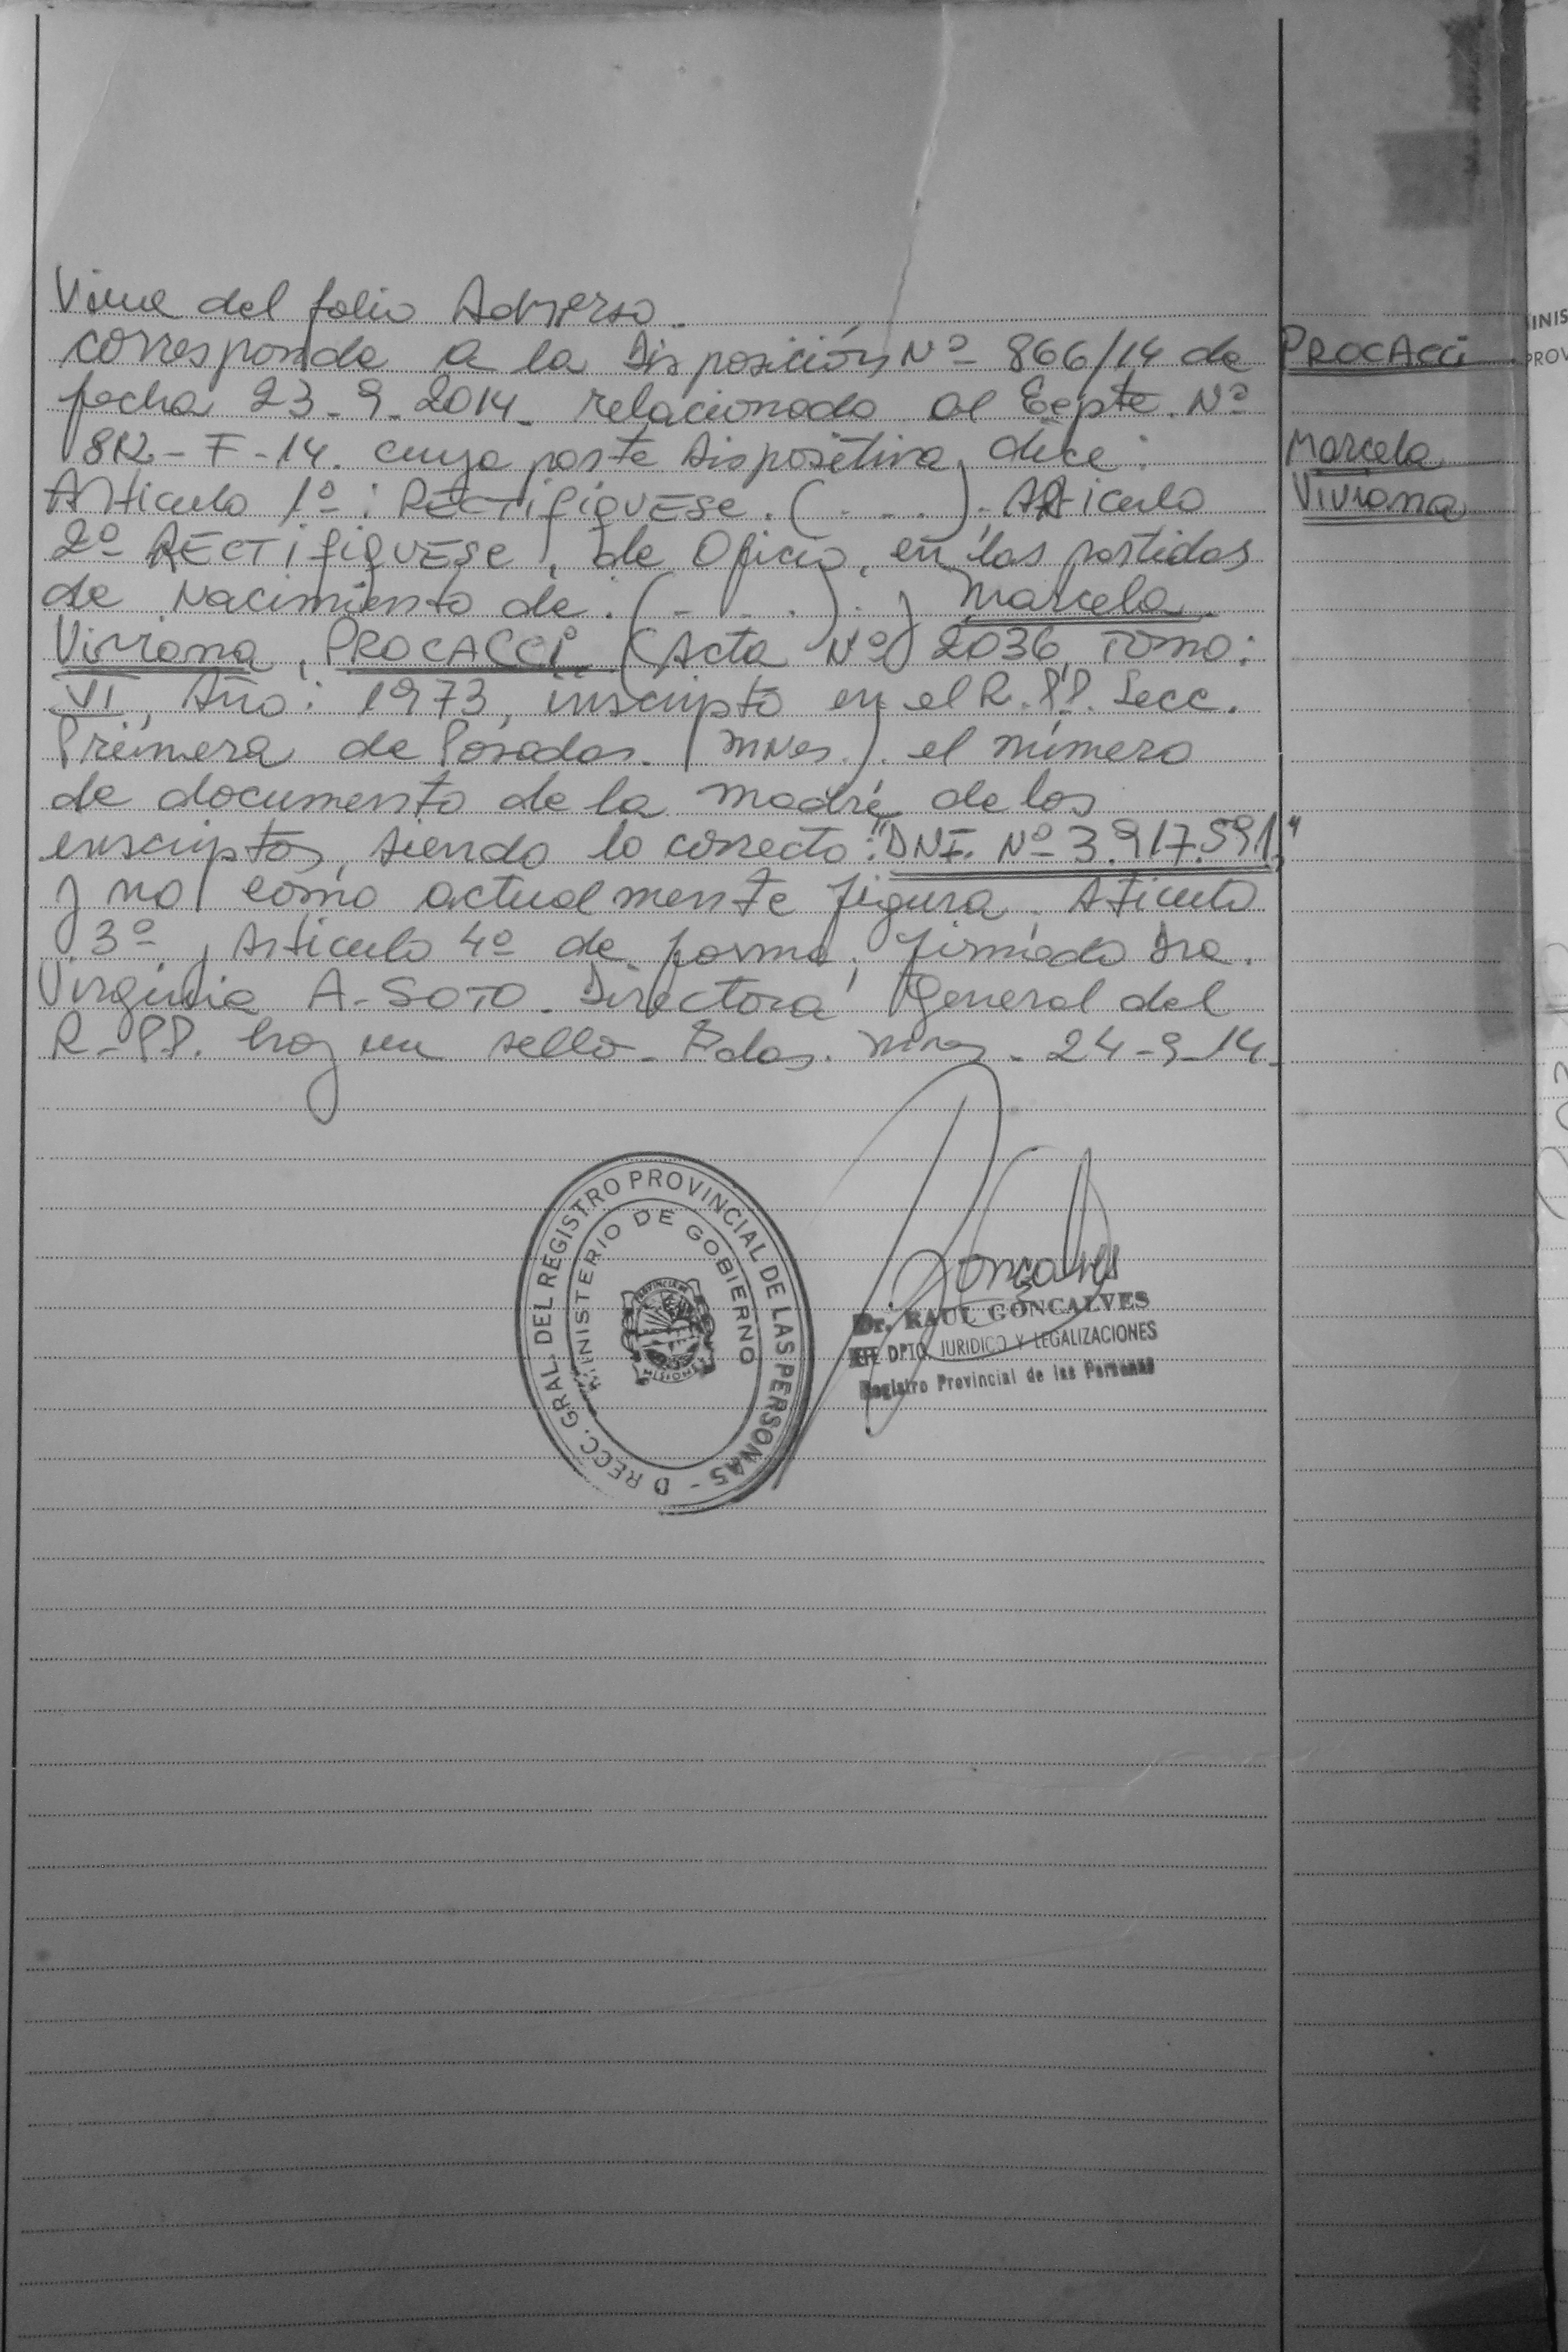 Viene del folio Adverso.
corresponde a la Disposición Nº 866/14 de
fecha 23-9-2014. relacionado al Expte. Nº
812-F-14. cuya parte dispositiva, dice:
Artículo 1º: RECTIFÍQUESE. (....). Artículo
2º RECTIFIQUESE, de Oficio, en las partidas
de Nacimiento de. (-...). y Marcela
Viviana, PROCACCi (Acta Nº 2036, Tomo:
VI, Año: 1973, inscripto en el R.PP. Secc.
Primera de Posadas. (Mnes.). el número
de documento de la madre de los
inscriptos, siendo lo correcto: "DNI. Nº 3.917.591,"
y no como actualmente figura. Aticulo
3º y Artículo 4º de forma; firmado Dra.
Virginia A. SOTO. Directora General del
R-PP. hay un sello- Pdas. Mnes. 24-9-14-
PROCACCi
Marcela
Viviana
DIRECC. GRAL. DEL REGISTRO PROVINCIAL DE LAS PERSONAS -
MINISTERIO DE GOBIERNO
PROVINCIA DE
MISIONES
Gonçalves
Dr. RAUL GONÇALVES
JEFE DPTO. JURIDICO Y LEGALIZACIONES
Registro Provincial de las Personas
INIS
PROV